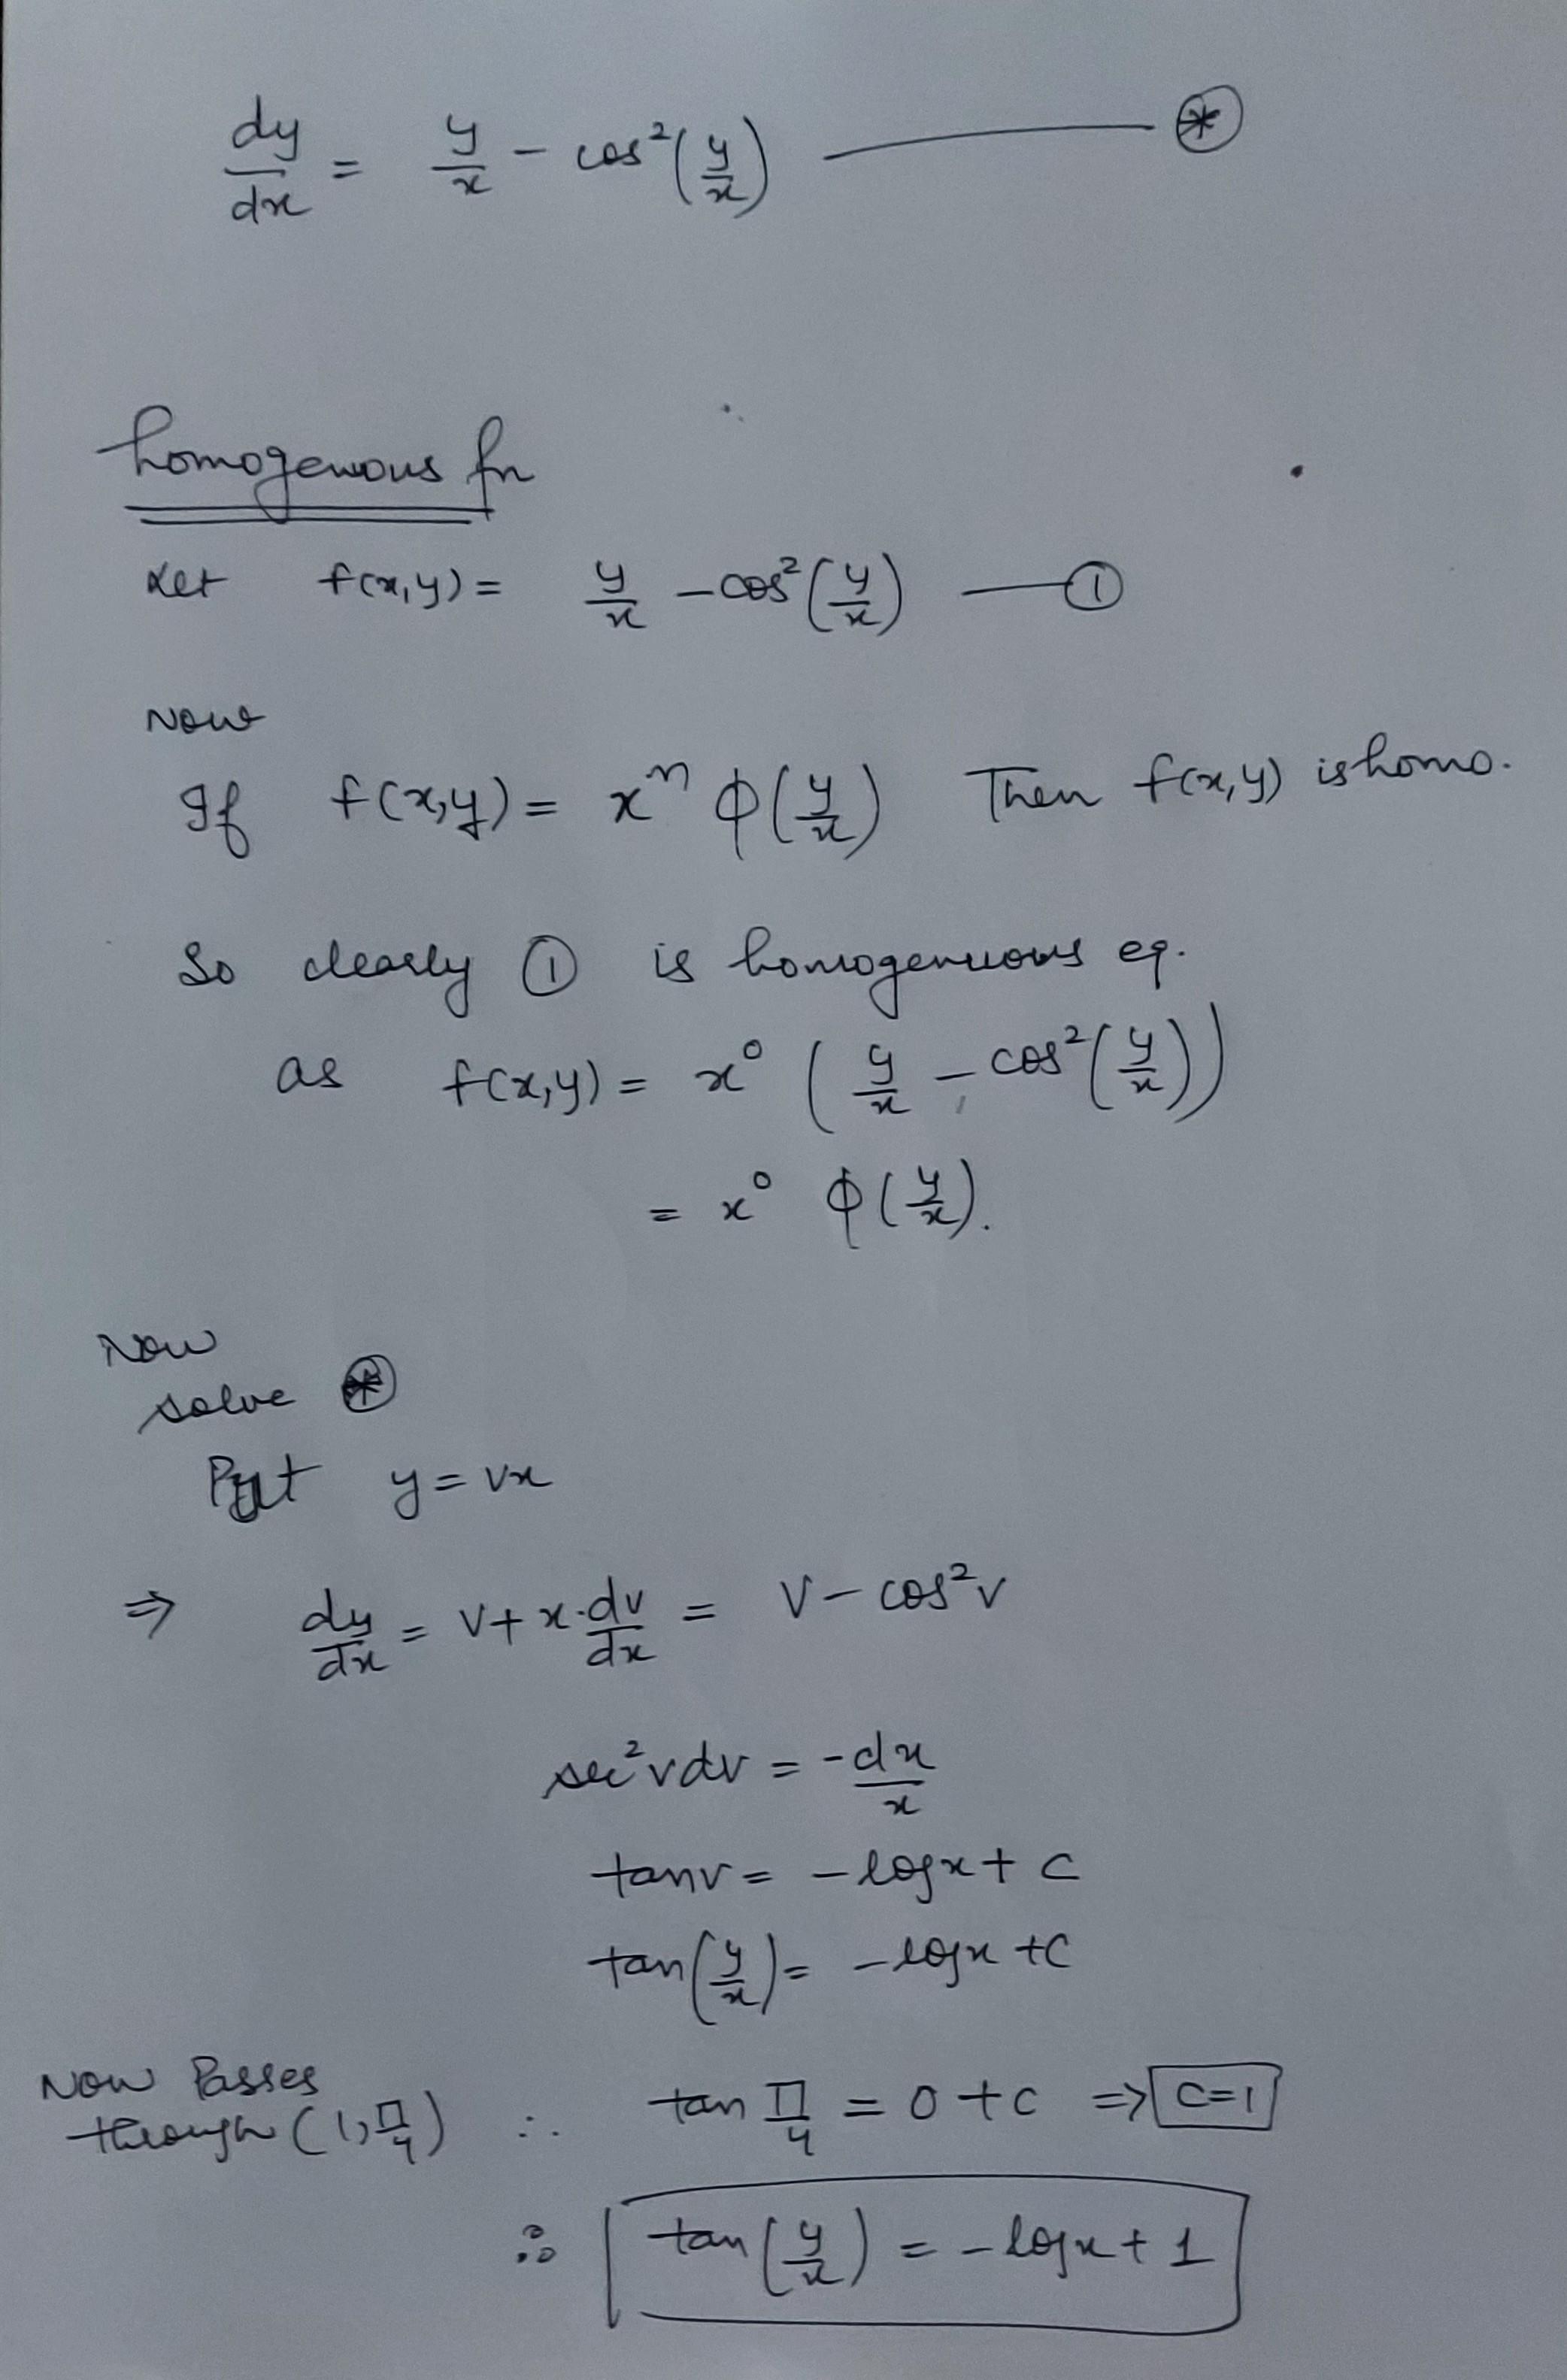 dy/dx = y/x - cos²(y/x) —— ⊛
homogenous fn
Let f(x,y) = y/x - cos²(y/x) —— ①
Now
If f(x,y) = xⁿ ϕ(y/x) Then f(x,y) is homo.
So clearly ① is homogenuous eq.
as f(x,y) = x⁰ (y/x - cos²(y/x))
= x⁰ ϕ(y/x).
Now
solve ⊛
Put y = vx
⇒ dy/dx = v + x·dv/dx = v - cos²v
sec²v dv = -dx/x
tanv = -logx + c
tan(y/x) = -logx + c
Now Passes
through (1, π/4) ∴ tan π/4 = 0 + c ⇒ c=1
∴ tan(y/x) = -logx + 1